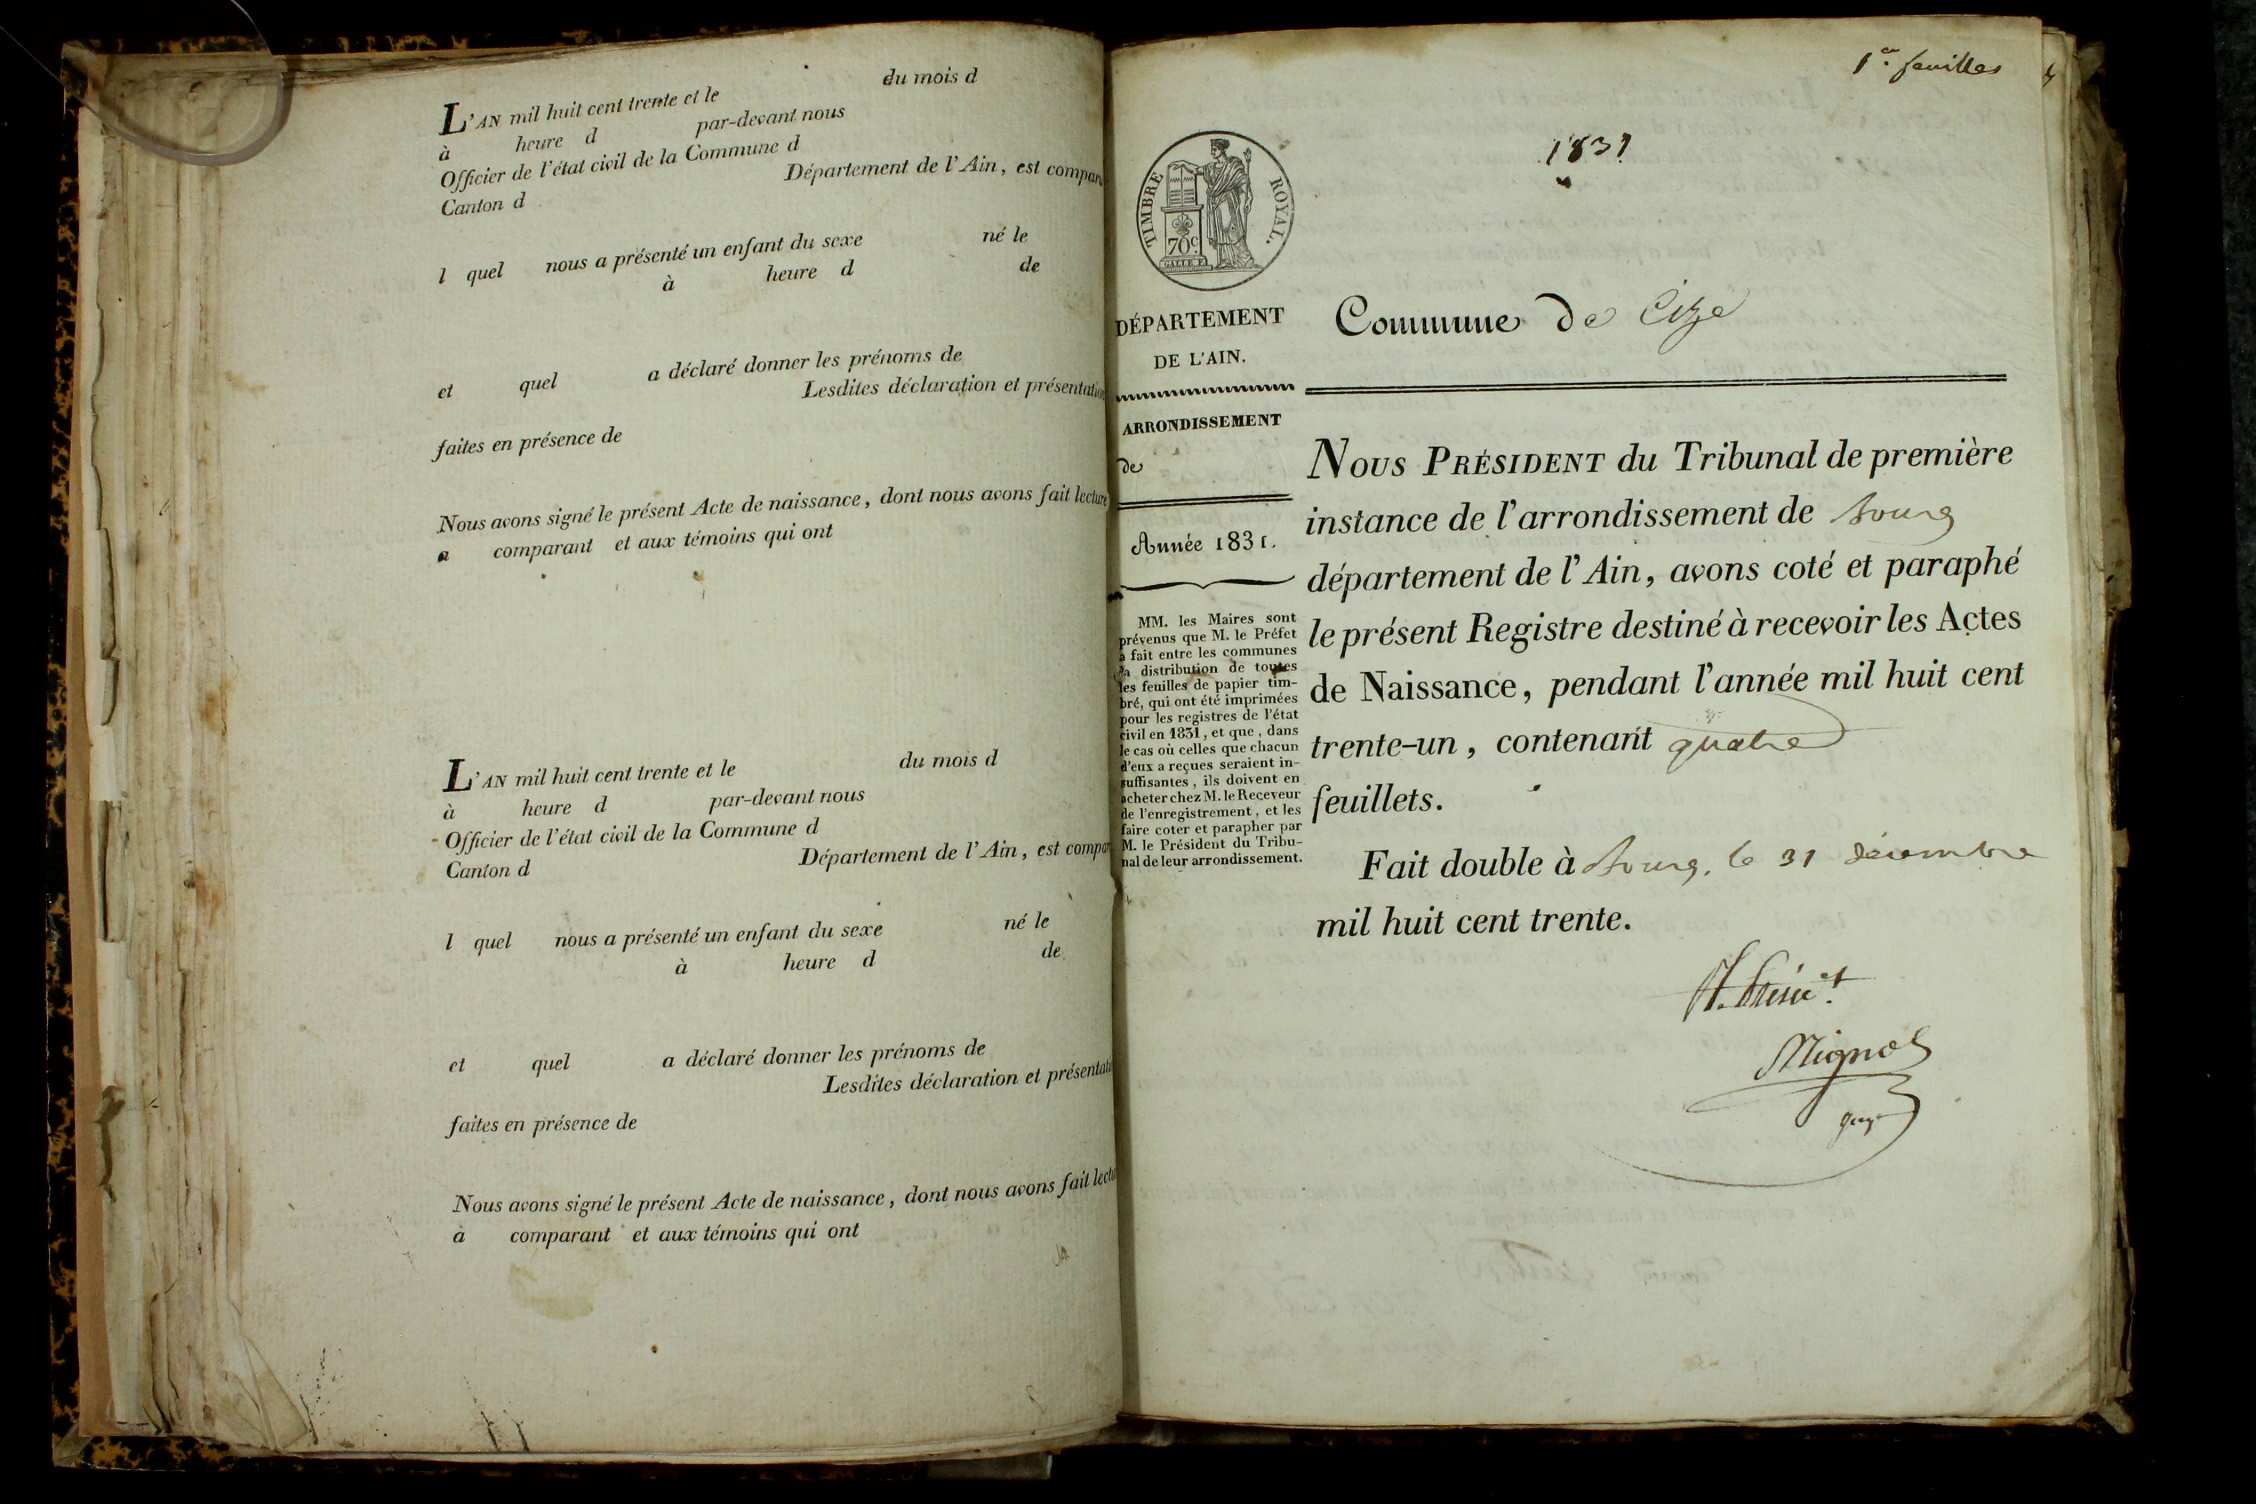 L'AN mil huit cent trente et le du mois d
à heure d par-devant nous
Officier de l'état civil de la Commune d
Canton d Département de l'Ain, est compar
l quel nous a présenté un enfant du sexe né le
à heure d de
et quel a déclaré donner les prénoms de
Lesdites déclaration et présentation
faites en présence de
Nous avons signé le présent Acte de naissance, dont nous avons fait lecture
a comparant et aux témoins qui ont
L'AN mil huit cent trente et le du mois d
à heure d par-devant nous
Officier de l'état civil de la Commune d
Canton d Département de l'Ain, est compar
l quel nous a présenté un enfant du sexe né le
à heure d de
et quel a déclaré donner les prénoms de
Lesdites déclaration et présentati
faites en présence de
Nous avons signé le présent Acte de naissance, dont nous avons fait lectu
à comparant et aux témoins qui ont
feuilles
1831
TIMBRE ROYAL.
70c
DÉPARTEMENT
DE L'AIN.
ARRONDISSEMENT
de
Année 1831.
MM. les Maires sont
prévenus que M. le Préfet
a fait entre les communes
la distribution de toutes
les feuilles de papier tim-
bré, qui ont été imprimées
pour les registres de l'état
civil en 1831, et que, dans
le cas où celles que chacun
d'eux a reçues seraient in-
suffisantes, ils doivent en
acheter chez M. le Receveur
de l'enregistrement, et les
faire coter et parapher par
M. le Président du Tribu-
nal de leur arrondissement.
Commune de Cize
NOUS PRÉSIDENT du Tribunal de première
instance de l'arrondissement de Bourg
département de l'Ain, avons coté et paraphé
le présent Registre destiné à recevoir les Actes
de Naissance, pendant l'année mil huit cent
trente-un, contenant quatre
feuillets.
Fait double à Bourg, le 31 décembre
mil huit cent trente.
Mignot